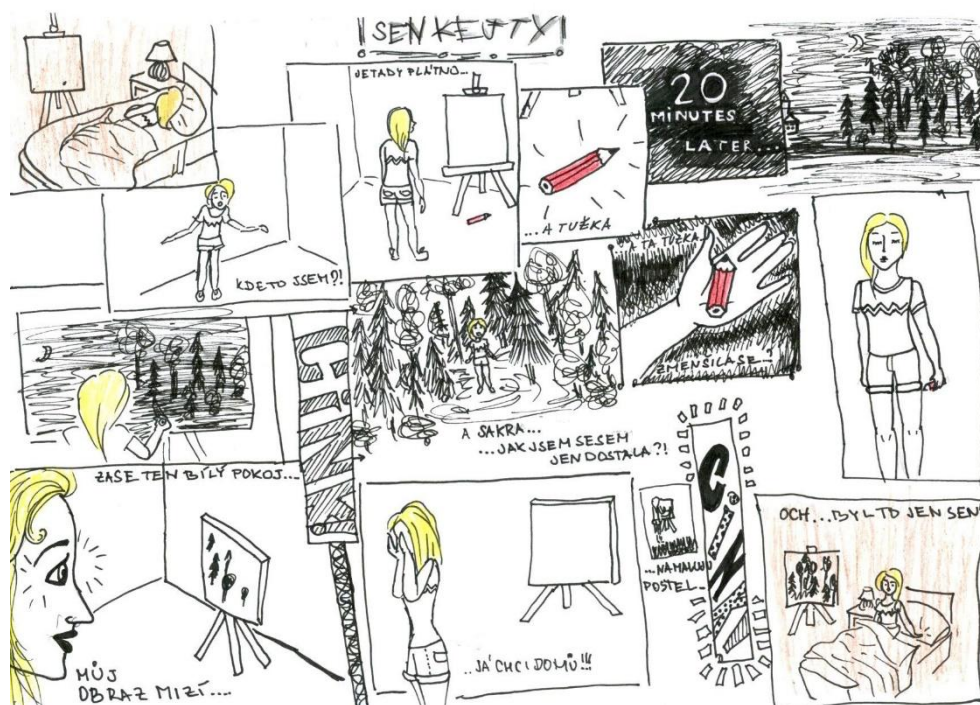 SEN KEJTY
KDE TO JSEM?!
JE TADY PLÁTNO...
...A TUŽKA
20
MINUTES
LATER...
A TA TUŽKA
ZMENŠILA SE?
A SAKRA...
...JAK JSEM SE SEM
JEN DOSTALA?!
CINK
ZASE TEN BÍLÝ POKOJ...
MŮJ
OBRAZ MIZÍ....
...JÁ CHCI DOMŮ!!!
...NAMALUJU
POSTEL...
OCH...BYL TO JEN SEN